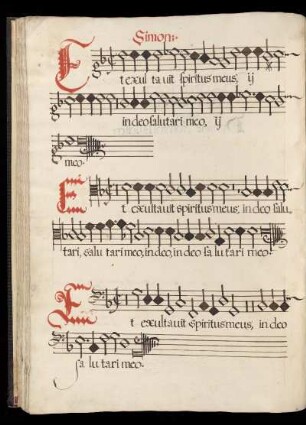 Simon:
Et exultavit spiritus meus, ij
in deo salutari meo, ij
meo.
Et exultavit spiritus meus, in deo salu
tari, salutari meo, in deo, in deo salutari meo.
Et exultavit spiritus meus, in deo
salutari meo.